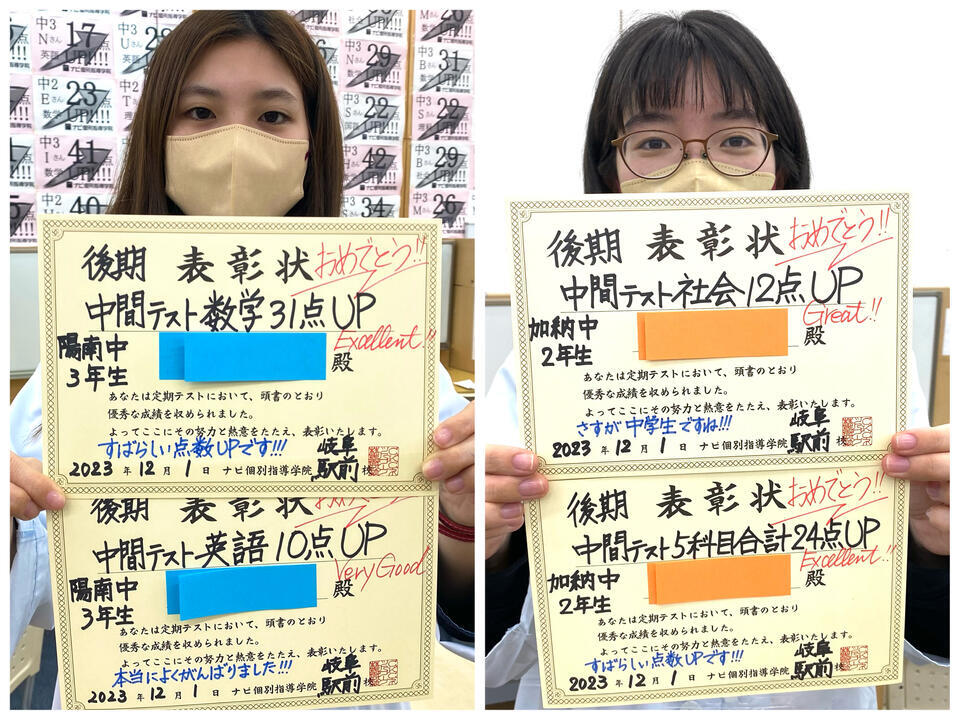 中3
Nさん
17
英語
UP!!!
中3
中2
Eさん
23点
数学
UP!!!
中2
中3
Iさん
41点
UP!!!
40
中3
29点
数学
UP!!!
中3
31点
数学
UP!!!
22
UP!!!
22
UP!!!
42
UP!!!
29
UP!!!
34
26
後期 表彰状
おめでとう!!
中間テスト数学31点UP
Excellent!!
陽南中
3年生
殿
あなたは定期テストにおいて、頭書のとおり
優秀な成績を収められました。
よってここにその努力と熱意をたたえ、表彰いたします。
すばらしい点数UPです!!!
2023年12月1日 ナビ個別指導学院 岐阜駅前校
後期 表彰状
おめでとう!!
中間テスト英語10点UP
Very Good
陽南中
3年生
殿
あなたは定期テストにおいて、頭書のとおり
優秀な成績を収められました。
よってここにその努力と熱意をたたえ、表彰いたします。
本当によくがんばりました!!!
2023年12月1日 ナビ個別指導学院 岐阜駅前校
後期 表彰状
おめでとう!!
中間テスト社会12点UP
Great!!
加納中
2年生
殿
あなたは定期テストにおいて、頭書のとおり
優秀な成績を収められました。
よってここにその努力と熱意をたたえ、表彰いたします。
さすが中学生ですね!!!
2023年12月1日 ナビ個別指導学院 岐阜駅前校
後期 表彰状
おめでとう!!
中間テスト5科目合計24点UP
Excellent!!
加納中
2年生
殿
あなたは定期テストにおいて、頭書のとおり
優秀な成績を収められました。
よってここにその努力と熱意をたたえ、表彰いたします。
すばらしい点数UPです!!!
2023年12月1日 ナビ個別指導学院 岐阜駅前校